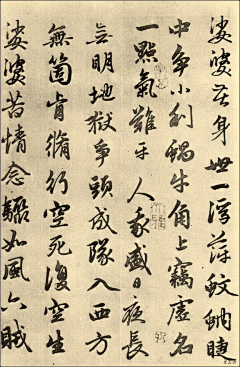 娑婆苦身世一浮萍蚊蚋睫
中爭小利蝸牛角上竊虛名
一點氣難平 人我盛日夜長
無明地獄爭頭成隊入西方
無箇肯脩行空死復空生
娑婆苦情念驟如風六賊